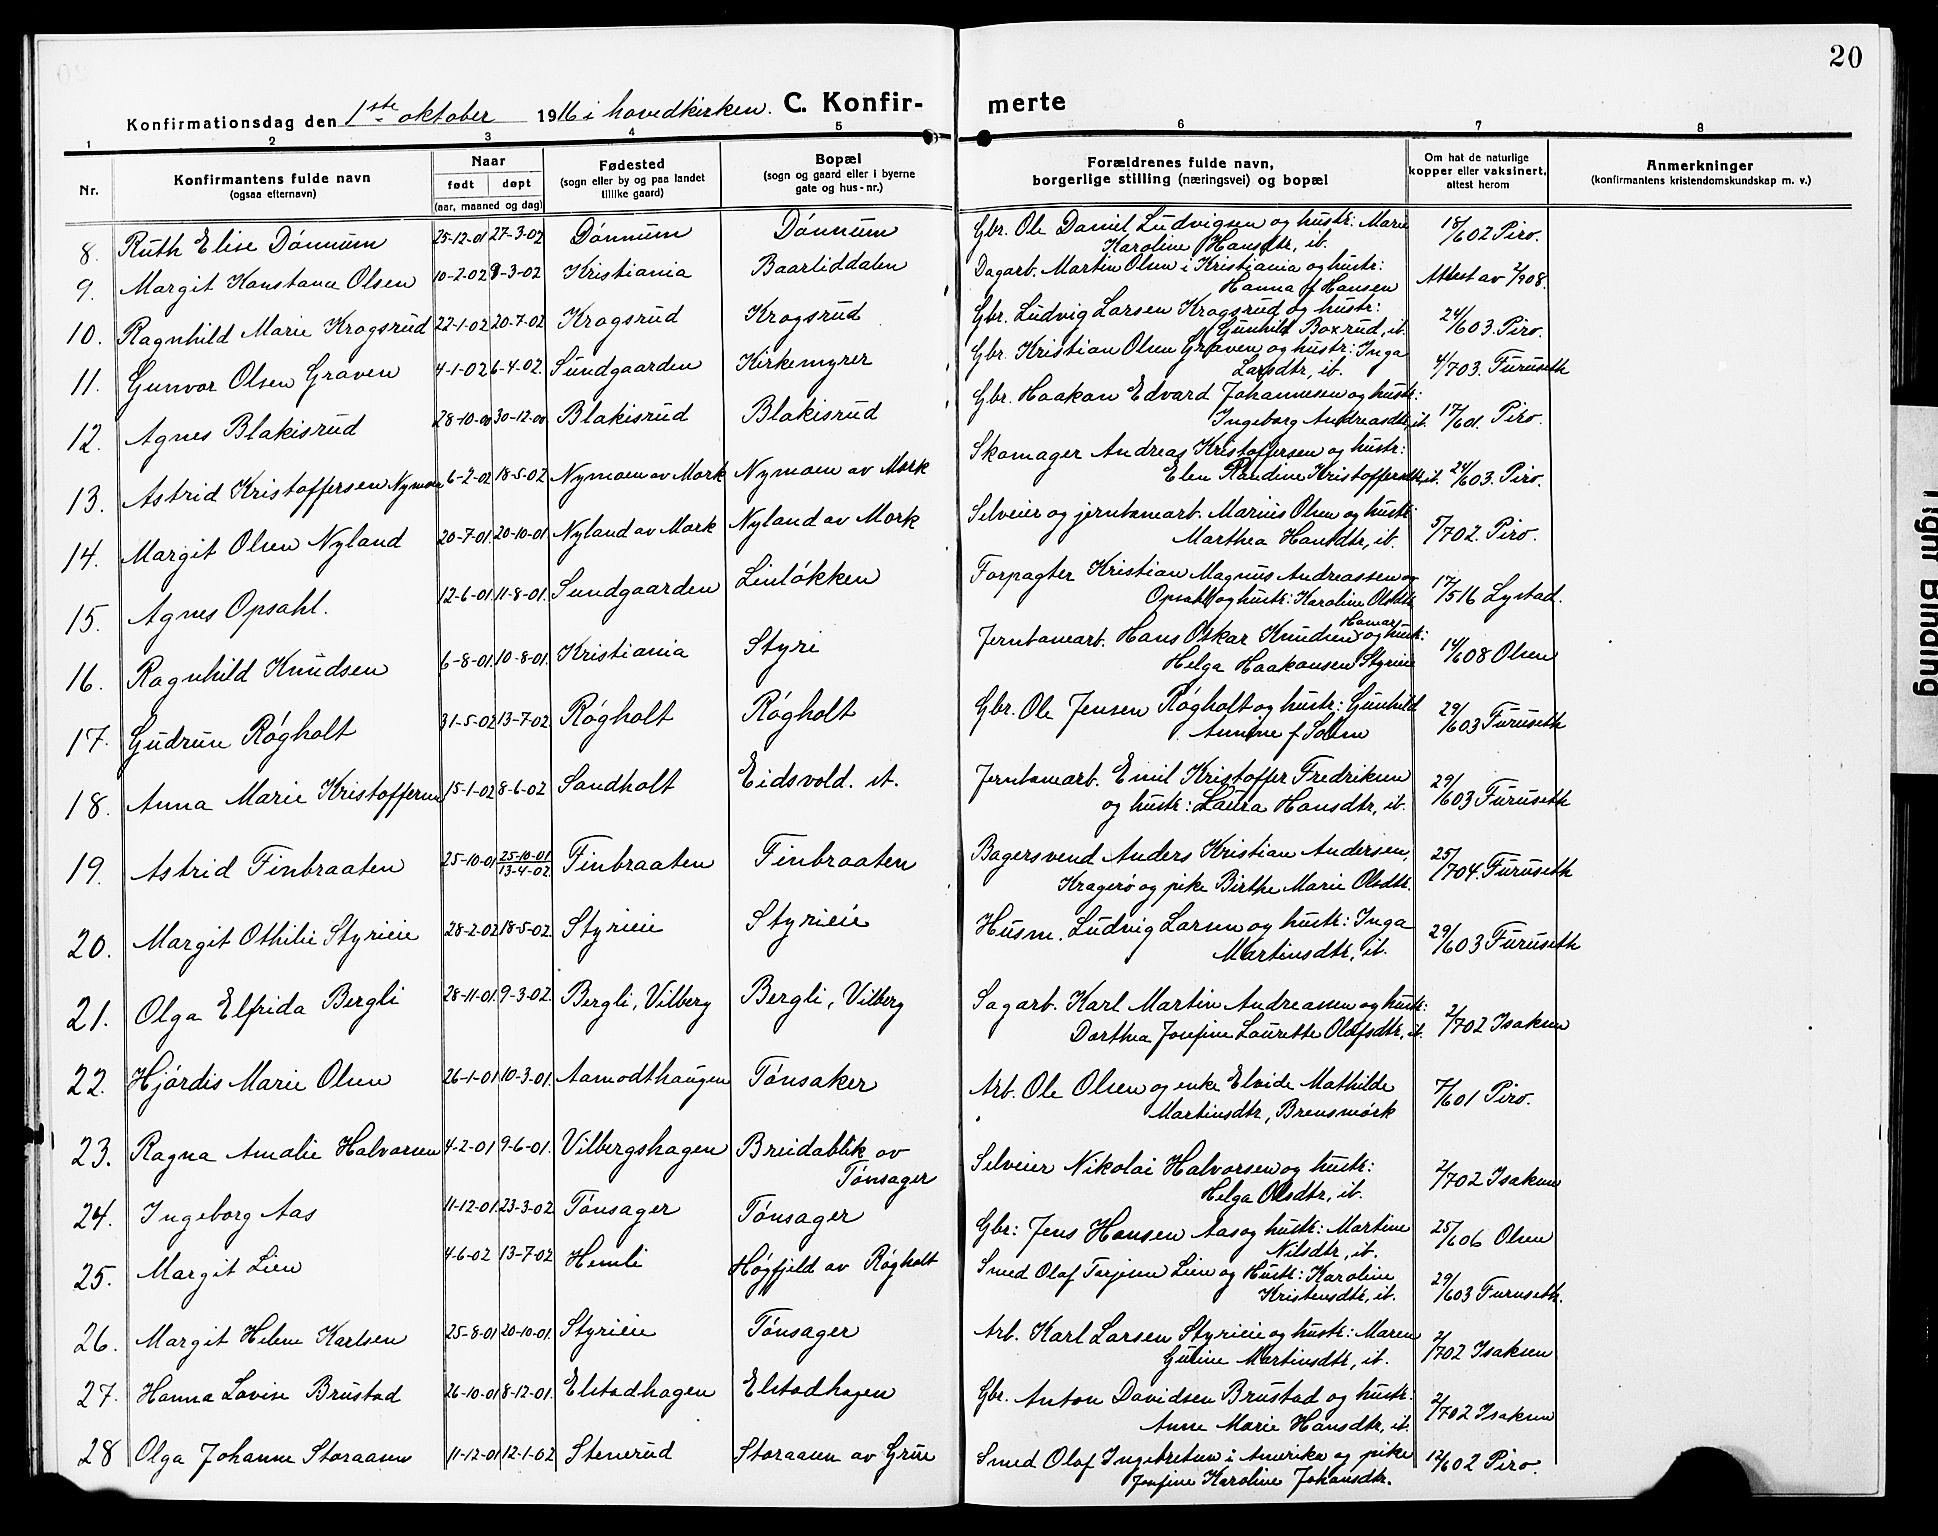 20
Konfirmationsdag den 1ste oktober 1916 i hovedkirken. C. Konfir- merte
1 2 3 4 5 6 7 8
Nr. Konfirmantens fulde navn (ogsaa efternavn) Naar født døpt (aar, maaned og dag) Fødested (sogn eller by og paa landet tillike gaard) Bopæl (sogn og gaard eller i byerne gate og hus-nr.) Forældrenes fulde navn, borgerlige stilling (næringsvei) og bopæl Om hat de naturlige kopper eller vaksinert, attest herom Anmerkninger (konfirmantens kristendomskundskap m. v.)
8. Ruth Elise Dónnum 25-12-01 27-3-02 Dónnum Dónnum Gbr. Ole Daniel Ludvigsen og hustr: Marie
Karoline Hansdtr, ib. 18/602 Piro.
9. Margit Konstance Olsen 10-2-02 9-3-02 Kristiania Baarliddalen Dagarb. Martin Olsen i Kristiania og hustr:
Hanna f Hansen Attest av 2/908.
10. Ragnhild Marie Krogsrud 22-1-02 20-7-02 Krogsrud Krogsrud Gbr. Ludvig Larsen Krogsrud og hustr:
Gunhild Boxrud, ib. 24/603. Piro.
11. Gunvor Olsen Graven 4-1-02 6-4-02. Sundgaarden Kirkemyrer Gbr. Kristian Olsen Graven og hustr: Inga
Larsdtr, ib. 4/703. Furuseth
12. Agnes Blakisrud 28-10-00 30-12-00 Blakisrud Blakisrud Gbr. Haakon Edvard Johannesen og hustr:
Ingeborg Andreasdtr, ib. 17/601. Piro.
13. Astrid Kristoffersen Nymoen 6-2-02 18-5-02 Nymoen av Mork Nymoen av Mork Skomager Andreas Kristoffersen og hustr:
Elen Randine Kristoffersdtr, ib. 24/603. Piro.
14. Margit Olsen Nyland 20-7-01. 20-10-01 Nyland av Mork Nyland av Mork Selveier og jernbanearb. Marius Olsen og hustr:
Marthea Hansdtr, ib. 5/702. Piro.
15. Agnes Opsahl. 12-6-01. 11-8-01. Sundgaarden Linlókken Forpagter Kristian Magnus Andreassen
Opsahl og hustr: Karoline Olsdtr 17/516 Lystad.
16. Ragnhild Knudsen 6-8-01. 10-8-01. Kristiania Styri Jernbanearb. Hans Oskar Knudsen Hamar og hustr:
Helga Haakonsen Styrieie 14/608 Olsen
17. Gudrun Rógholt 31-5-02 13-7-02 Rógholt Rógholt Gbr. Ole Jensen Rógholt og hustr: Gunhild
Annine f 29/603 Furuseth
18. Anna Marie Kristoffersen 15-1-02 8-6-02 Sandholt Eidsvold. st. Jernbanearb. Emil Kristoffer Fredriksen
og hustr: Laura Hansdtr, ib. 29/603 Furuseth
19. Astrid Finbraaten 25-10-01 25-10-01 13-4-02. Finbraaten Finbraaten Bagersvend Anders Kristian Andersen,
Kragerø og pike Birthe Marie Olsdtr. 25/704. Furuseth
20. Margit Othilie Styrieie 28-2-02 18-5-02. Styrieie Styrieie Husm. Ludvig Larsen og hustr: Inga
Martinsdtr, ib. 29/603 Furuseth
21. Olga Elfrida Bergli 28-11-01. 9-3-02. Bergli, Vilberg Bergli, Vilberg Sagarb. Karl Martin Andreassen og hustr:
Dorthea Josefine Laurette Olafsdtr, ib. 2/702 Isaksen
22. Hjørdis Marie Olsen 26-1-01 10-3-01. Aamodthaugen Tónsaker Arb. Ole Olsen og enke Elvide Mathilde
Martinsdtr, Brensmørk 7/601 Piro.
23. Ragna Amalie Halvorsen 4-2-01 9-6-01. Vilbergshagen Breidablik av
Tónsager Selveier Nikolai Halvorsen og hustr:
Helga Olsdtr, ib. 2/702 Isaksen
24. Ingeborg Aas 11-12-01. 23-3-02 Tónsager Tónsager Gbr: Jens Hansen Aas og hustr: Martine
Nilsdtr, ib. 25/606 Olsen
25. Margit Lien 4-6-02 13-7-02 Hemli Høgfjeld av Rógholt Smed Olaf Torjesen Lien og Hustr: Karoline
Kristensdtr, ib. 29/603 Furuseth.
26. Margit Helene Karlsen 25-8-01 20-10-01. Styrieie Tónsager Arb. Karl Larsen Styrieie og hustr: Maren
Guline Martinsdtr, ib. 2/702 Isaksen
27. Hanna Lovise Brustad 26-10-01 8-12-01. Elstadhagen Elstadhagen Gbr. Anton Davidsen Brustad og hustr:
Anne Marie Hansdtr, ib. 2/702 Isaksen
28 Olga Johanne Storaasen 11-12-01 12-1-02 Stenerud Storaasen av Grue Smed Olof Ingebretsen i Amerika og pike
Josefine Karoline Johansdtr. 12/602 Piro.
Tight Binding